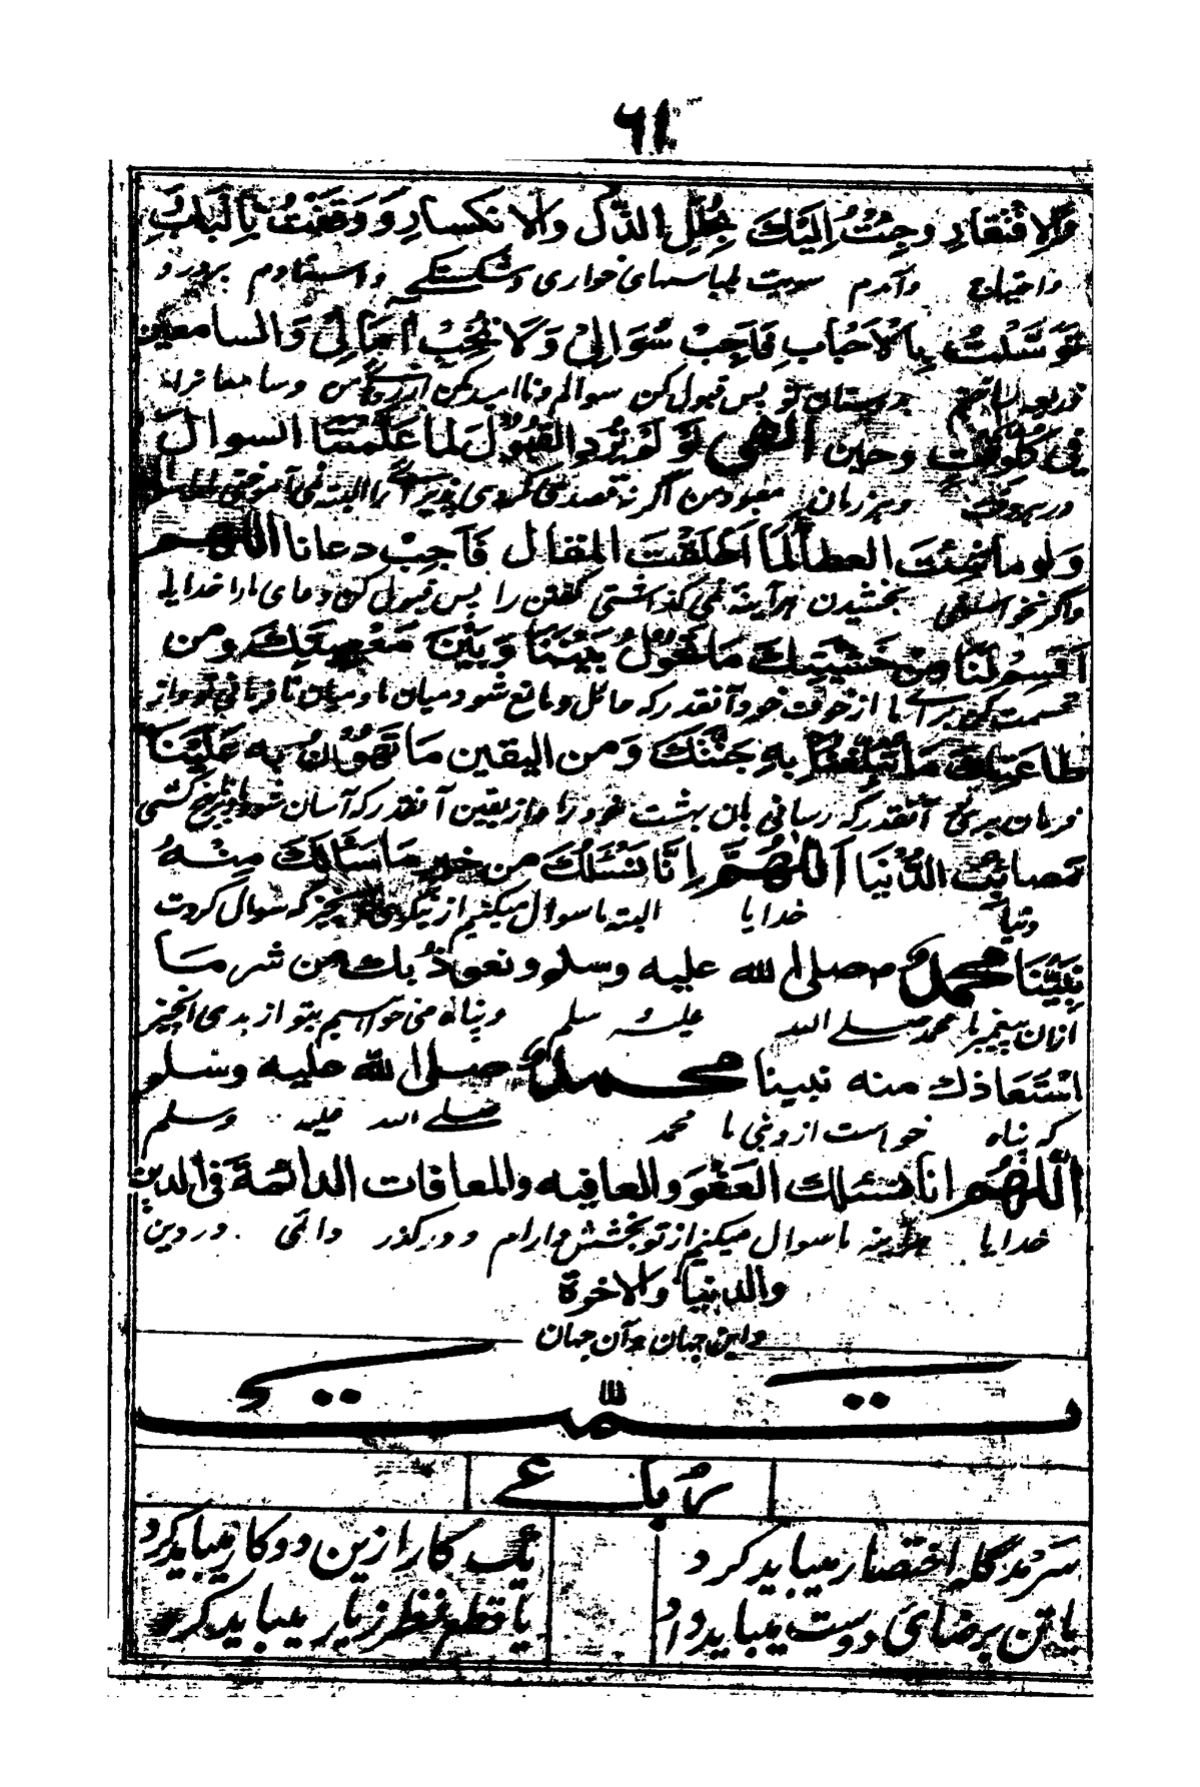 ٦١
وَالاِفْتِقَارِ وَجِئْتُ اِلَيْكَ بِحُلَلِ الذُّلِّ وَالانكسارِ وَوَقَفْتُ بِالْبَابِ
واحتیاج وآمدم سویت بلباسهای خواری وشکستگے واستادم بردر و
تَوَسَّلْتُ بِالْاَحْبَابِ فَاَجِبْ سُوَالِیْ وَلَا تُخَيِّبْ آمَالِیْ وَالسامعين
بدوستان تو پس قبول کن سوالم وناامید مکن وسامعانرا
فی كُلِّ وَقْتٍ وحین الٰهی لَوْ لَمْ تُرِدِ القَبُوْلَ لَمَا عَلَّمْتَنَا السوال
درہروقت وہرزمان معبود من اگر نه قصد می کردی را البته نمی آموختی
وَلَو مَا شِئْتَ العطا لَمَا اَطْلَقْتَ المقال فَاَجِبْ دعانا اللّٰهم
واگر نخواستے بخشیدن ہرآینہ نمی گذاشتی گفتن را پس قبول کن دعای مارا خدایا
اقْسِمْ لَنَا مِنْ خَشْيَتِكَ مَا تَحُوْلُ بَيْنَنَا وَبَيْنَ مَعْصِيَتِكَ ومن
قسمت کن برائے ما از خوف خود آنقدر کہ حائل ومانع شود میان ما ومیان نافرمانی تو واز
طاعتِكَ مَا تُبَلِّغُنَا بِهٖ جَنَّتَكَ وَمن اليقين مَا تَهُوْنُ بِهٖ عَلَيْنَا
فرمان برداری آنقدر کہ رسانی بآن بہشت خود را واز یقین آنقدر کہ آسان شود
مصائِبَ الدُّنْيَا اَللّٰهُمَّ اِنَّا نَسْئَلُكَ من خير مَا سَئَالَكَ مِنْهُ
دنیا خدایا البتہ ما سوال میکنیم از نیکوی چیز کہ سوال کردت
نَبِيُّنَا محمد صلی الله عليه وسلم ونعوذُ بك من شر مَا
ازان پیغمبر ما محمد صلے اللہ علیہ وسلم وپناہ می خواہیم بتو از بدی آنچیز
اسْتَعَاذك منه نبينا محمد صلی الله عليه وسلم
کہ پناہ خواست ازو نبی ما محمد صلے اللہ علیہ وسلم
اَللّٰهُم انا نسئلك العَفْوَ والعافيه والمعافات الدائمة فی الدين
خدایا ہرآینہ ما سوال میکنیم از تو بخشش وآرام ودرگذر دائمی ودر دین
والدنيا والاخرة
واین جہان وآن جہان
تمت
رباعے
سَرمد گلہ اختصار میباید کرد
یک کار ازین دو کار میباید کرد
یا تن برضای دوست میباید داد
یا قطع نظر زیار میباید کرد